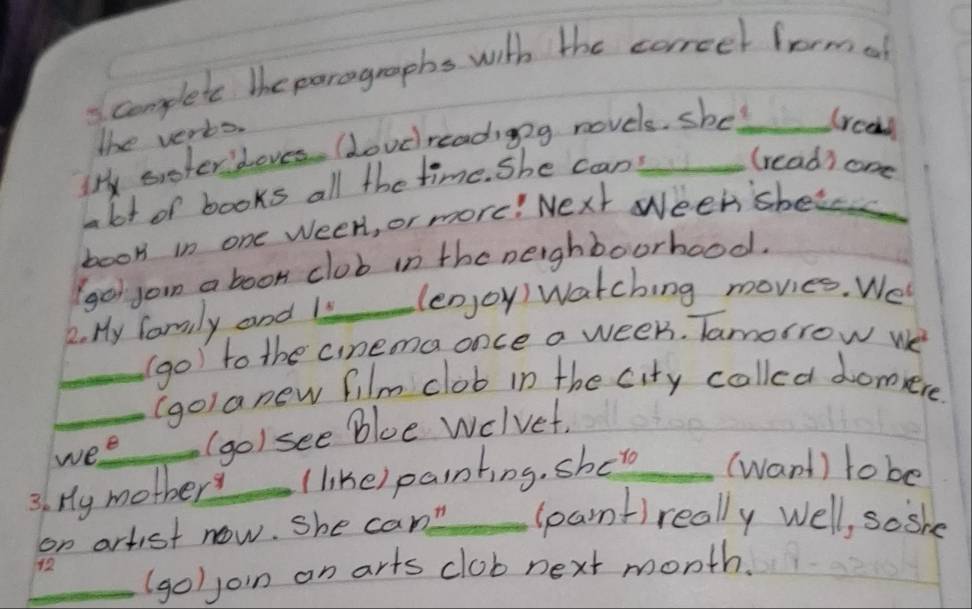 3. Complete the paragraphs with the correct form of
the verbs.
1. My sister ¹Loves (Love) readiging novels. She ²____ (read)
a lot of books all the time. She can ³____ (read) one
book in one week, or more! Next week she ⁴____
(go) join a book club in the neighboorhood.
2. My family and I ⁵____ (enjoy) Watching movies. We ⁶
____ (go) to the cinema once a week. Tamorrow we ⁷
____ (go) a new film club in the city called Lomiere.
we ⁸____ (go) see Bloe Welvet.
3. My mother ⁹____ (like) painting. She ¹⁰____ (want) to be
an artist now. She can ¹¹____ (paint) really well, so she
¹²____ (go) join an arts club next month.